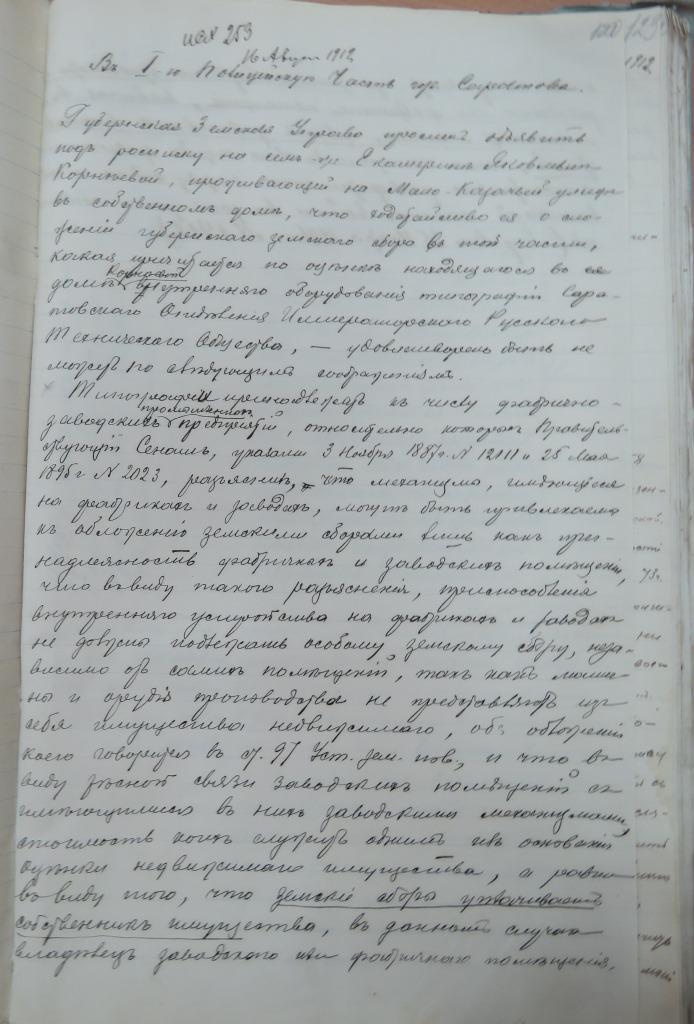 исх 253
123
16 Август 1912
1912
Въ I-ю Полицейскую Часть гор. Саратова.
Губернская Земская Управа проситъ объявить
подъ росписку на семъ-же Екатеринѣ Яковлевнѣ
Корнѣевой, проживающей на Мало-Казачьей улицѣ
въ собственномъ домѣ, что ходатайство ея о сло-
женіи губернскаго земскаго сбора въ той части,
какая причитается по оцѣнкѣ находящагося въ ея
домѣ внутренняго оборудованія типографіи Сара-
товскаго Отдѣленія Императорскаго Русскаго
Техническаго Общества, — удовлетворено быть не
можетъ по слѣдующимъ соображеніямъ.
Типографіи принадлежатъ къ числу фабрично-
промышленныхъ
заводскихъ предпріятій, относительно которыхъ Правитель-
ствующій Сенатъ, указами 3 Ноября 1887г. N 12111 и 25 Мая
1895г N 2023, разъяснилъ, что механизмы, имѣющіеся
на фабрикахъ и заводахъ, могутъ быть привлекаемы
къ обложенію земскими сборами лишь какъ при-
надлежность фабричныхъ и заводскихъ помѣщеній,
что въ виду такого разъясненія, приспособленія
внутренняго устройства на фабрикахъ и заводахъ
не должны подлежать особому земскому сбору, неза-
висимо отъ самихъ помѣщеній, такъ какъ маши-
ны и орудія производства не представляютъ изъ
себя имущества недвижимаго, объ обложеніи
коего говорится въ ст. 97 Уст. зем. пов., и что въ
виду тѣсной связи заводскихъ помѣщеній съ
имѣющимися въ нихъ заводскими механизмами,
стоимость коихъ служитъ однимъ изъ основаній
оцѣнки недвижимаго имущества, а равно
въ виду того, что земскіе сборы уплачиваетъ
собственникъ имущества, въ данномъ случаѣ
владѣлецъ заводскаго или фабричнаго помѣщенія,